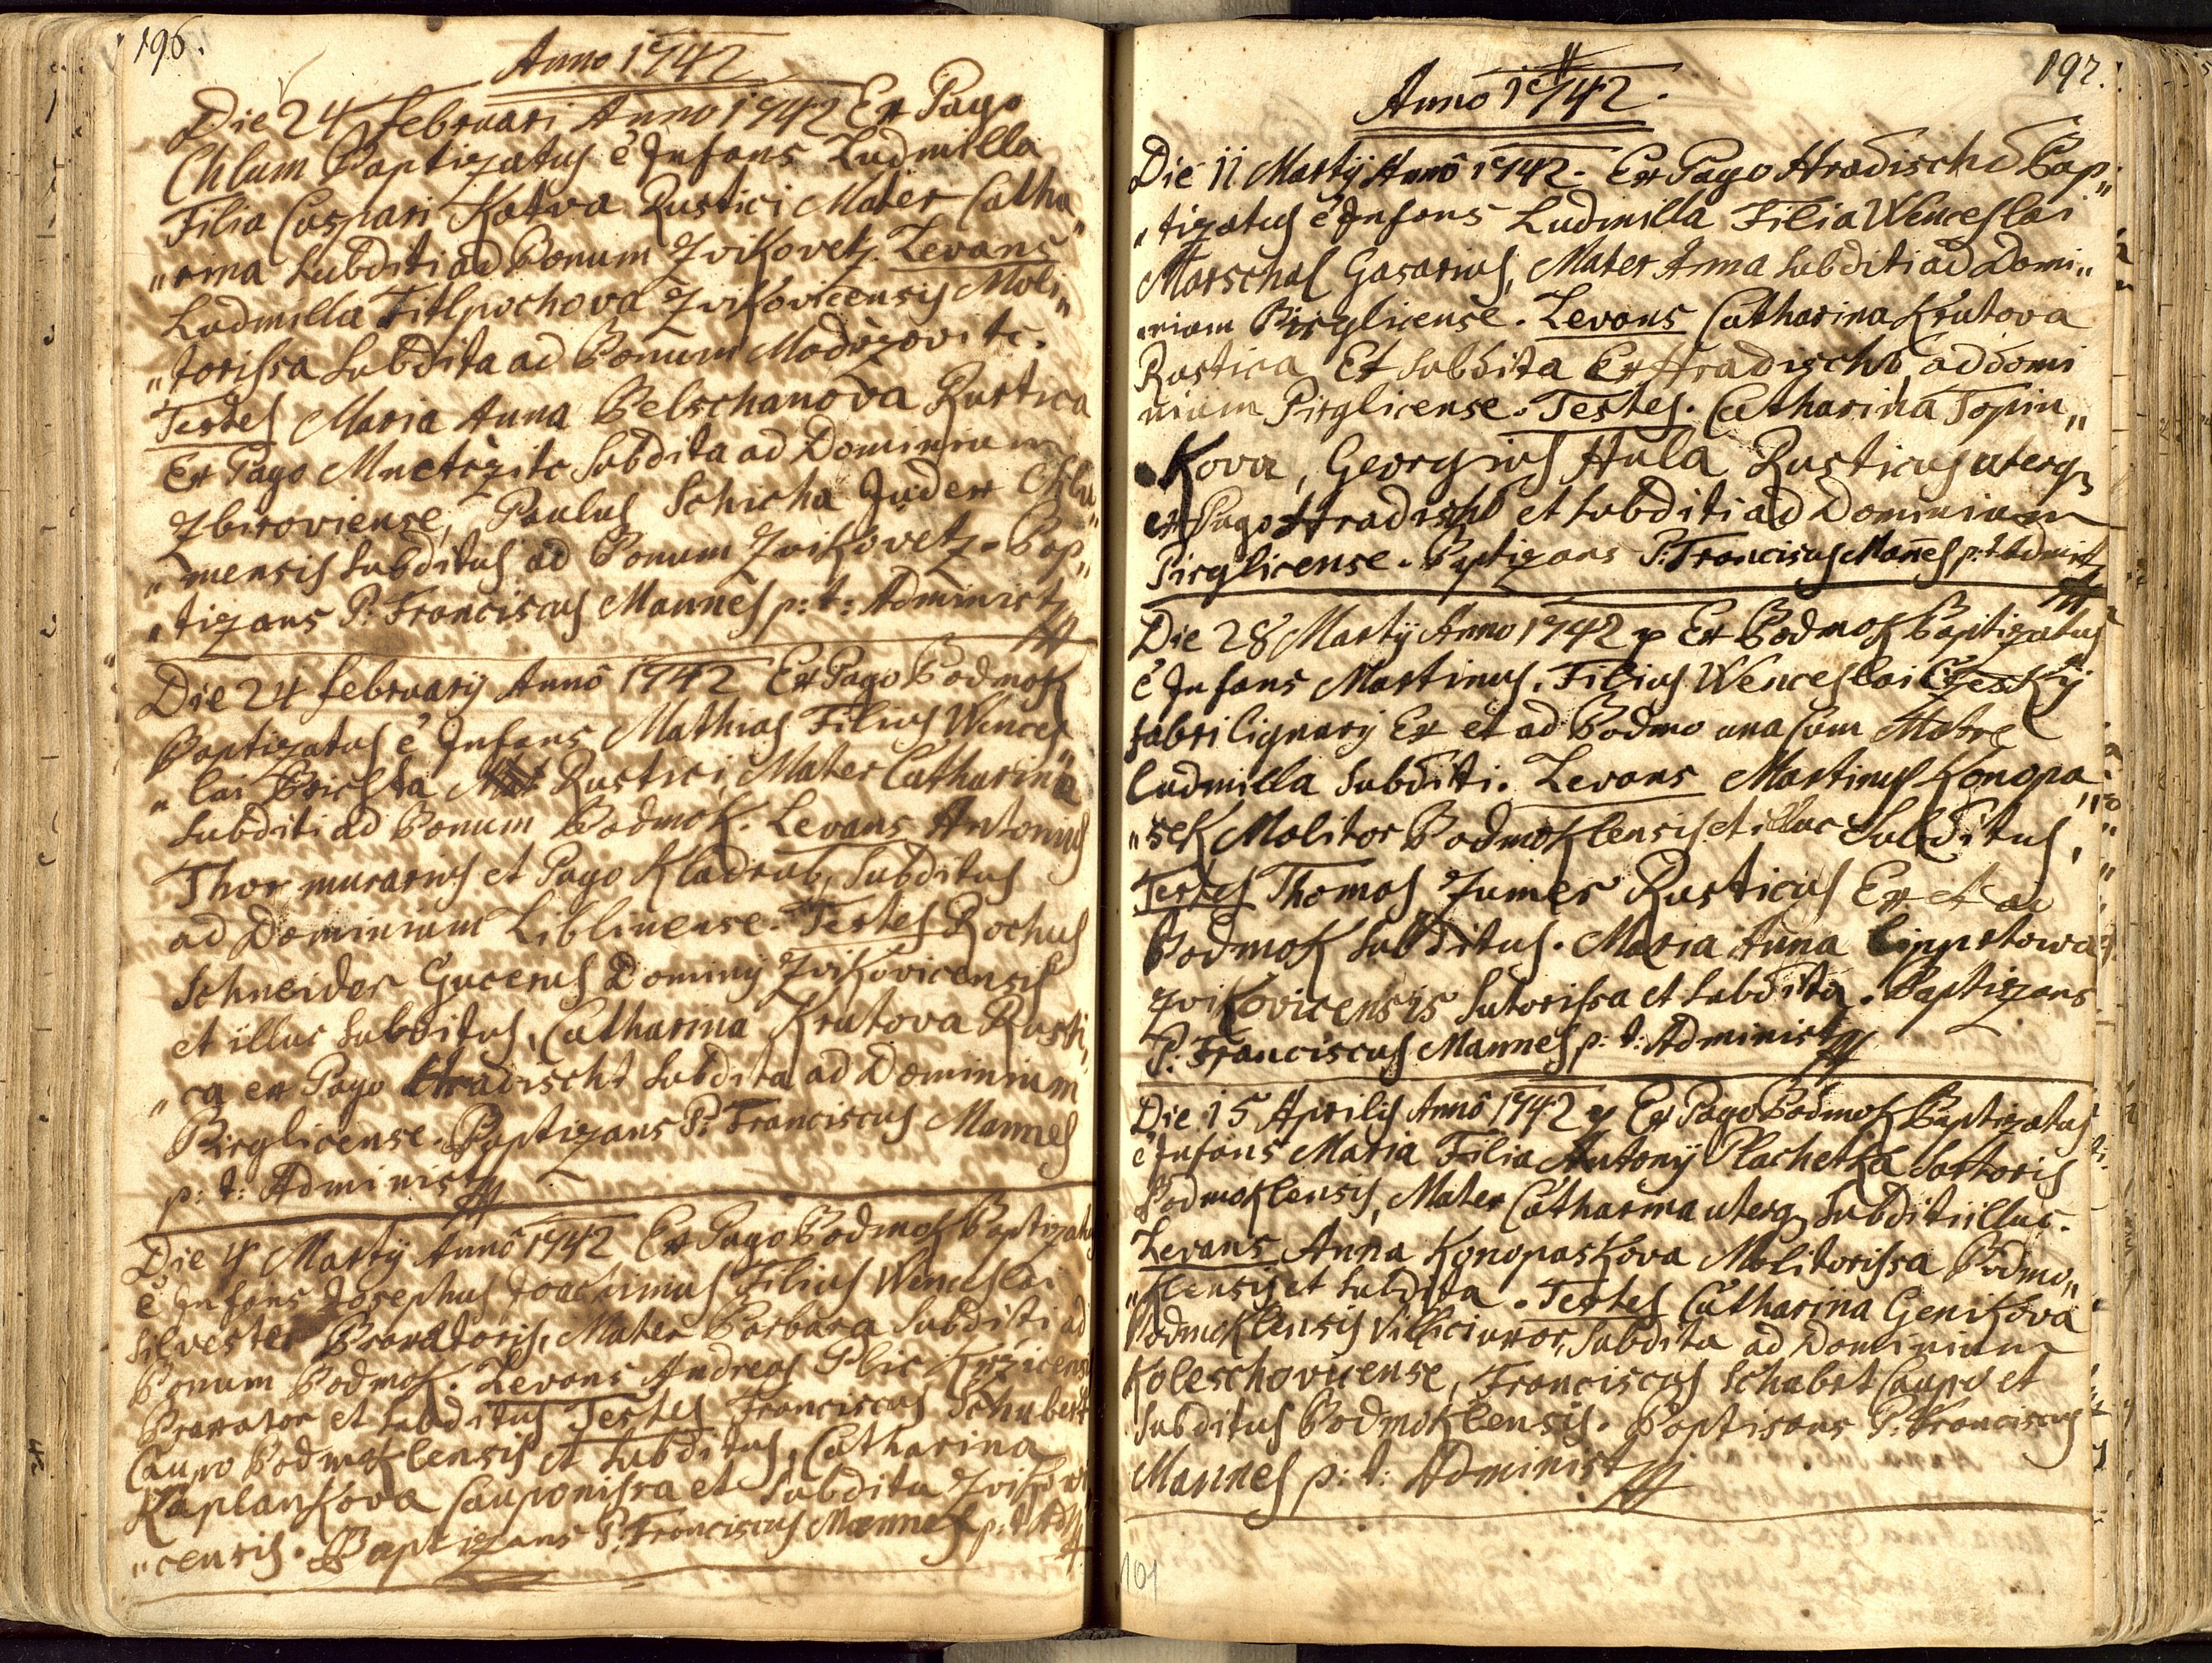 196.
Anno 1742
Die 24 februari Anno 1742 Ex Pago
Chlum Baptizatus ē Infans Ludmilla
Filia Caspari Kotva Rustici Mater Catha„
„rina Subditi ad Bonum Zvikovetz. Levans
Ludmilla Zvikovicensis Moli„
„torissa Subdita ad Bonum
Testes Maria Anna Belschanova Rustica
Ex Pago Mnetczitc Subdita ad Dominium
Zbiroviense, Paulus Schicha Judex Chlu„
„mensis Subditus ad Bonum Zvikovetz. Bap„
„tizans P. Franciscus Mannes p: t: Administ
Die 24 february Annô 1742 Ex Pago Podmok
Baptizatus ē Infans Mathias Filius Wences„
„lai Brichta Rustici, Mater Catharina
Subditi ad Bonum Podmok. Levans Antonius
Thor murarius et Pago Kladrub, Subditus
ad Dominium Liblinense. Testes Rochus
Schneider Dominy Zvikovicensis
et illuc Subditus, Catharina Krutova Rusti„
„ca ex Pago Hradischt Subdita ad Dominium
Pirglicense. Baptizans P. Franciscus Mannes
p: t: Administ
Die 4 Martÿ Annô 1742 Ex Pago Podmok Baptizatus
ē Infans Josephus Joachimus Filius Wenceslai
Silvester Braxatoris, Mater Barbara Subditi ad
Bonum Podmok. Levans Andreas Plic
Braxator et Subditus Testes Franciscus Schubert
Caupo Podmoklensis et Subditus, Catharina
Kaplankova Cauponissa et Subdita Zvikovi
„censis. Baptizans P. Franciscus Mannes p: t: Ad
197.
Anno 1742.
Die 11 Martÿ Annô 1742. Ex Pago Hradischt Bap„
„tizatus ē Infans Ludmilla Filia Wenceslai
Marschal Gasarius, Mater Anna Subditi ad Domi„
„nium Pirglicense. Levans Catharina Krutova
Rustica Et Subdita Ex Hradischt ad domi
nium Pirglicense. Testes. Catharina Topin„
Kova, Georgius Hula Rusticus uterq
ex Pago Hradischt et Subditi ad Dominium
Pirglicense. Baptizans P: Franciscus Mañes p: t: Administ
Die 28 Martÿ Anno 1742 Ex Podmok Baptizatus
ē Infans Martinus, Filius Wenceslai Czesky
fabri lignary Ex et ad Podmo una cum Matre
Ludmilla Subditi. Levans Martinus Konopa„
„sek Molitor Podmoklensis et illuc Subditus,
Testes Thomas Zumer Rusticus Ex et ad
Podmok Subditus. Maria Anna Lippertowa
Zvikovicensis Sutorissa et Subdita. Baptizans
P. Franciscus Mannes p: t: Administ
Die 15 Aprilis Annô 1742 Ex Pago Podmok Baptizatus
ē Infans Maria Filia Antonÿ Plachetka Sartoris
Podmoklensis, Mater Catharina uterq Subditi illuc.
Levans Anna Konopaskova Molitorissa Podmo„
„klensis et Subdita. Testes Catharina Genikova
Podmoklensis Villici uxor, Subdita ad Dominium
Koleschovicense, Franciscus Schabrt Caupo et
Subditus Podmoklensis. Baptisans P. Franciscus
Mannes p: t: Administ
101